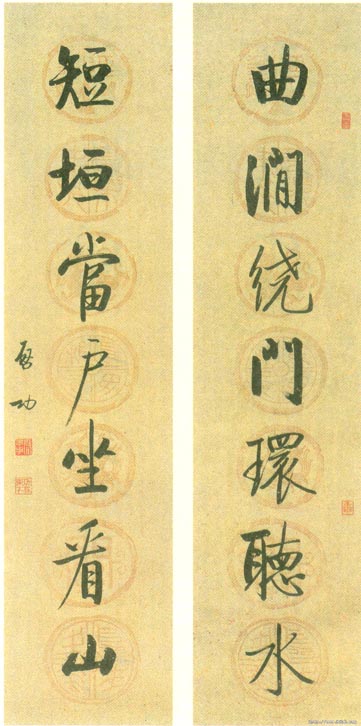 曲澗绕門環聽水
短垣當户坐看山
启功